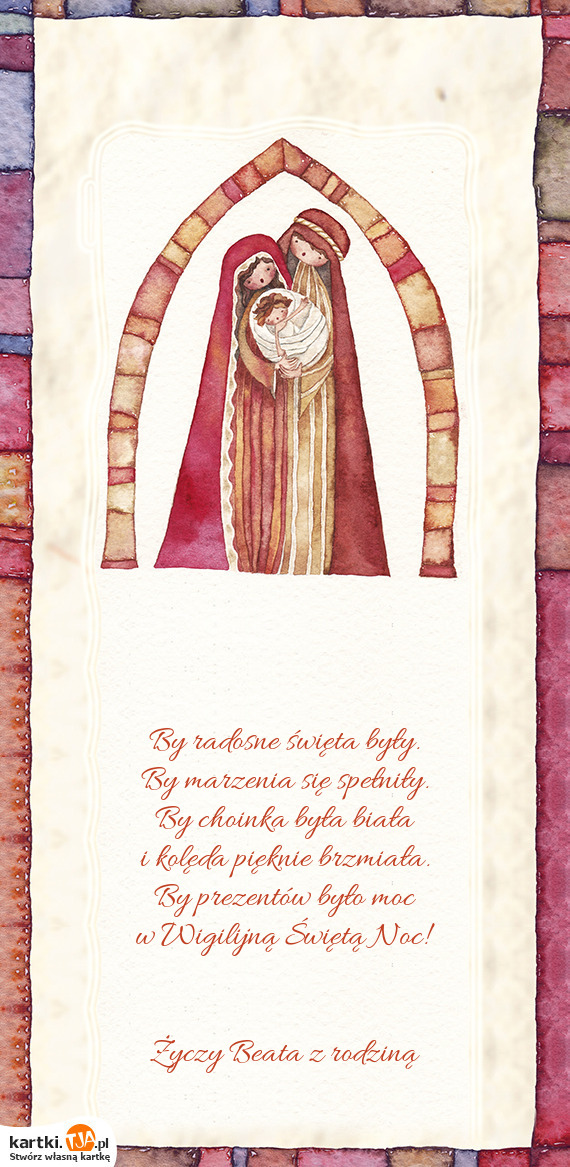 By radosne święta były.
By marzenia się spełniły.
By choinka była biała
i kolęda pięknie brzmiała.
By prezentów było moc
w Wigilijną Świętą Noc!
Życzy Beata z rodziną
kartki.TJA.pl
Stwórz własną kartkę